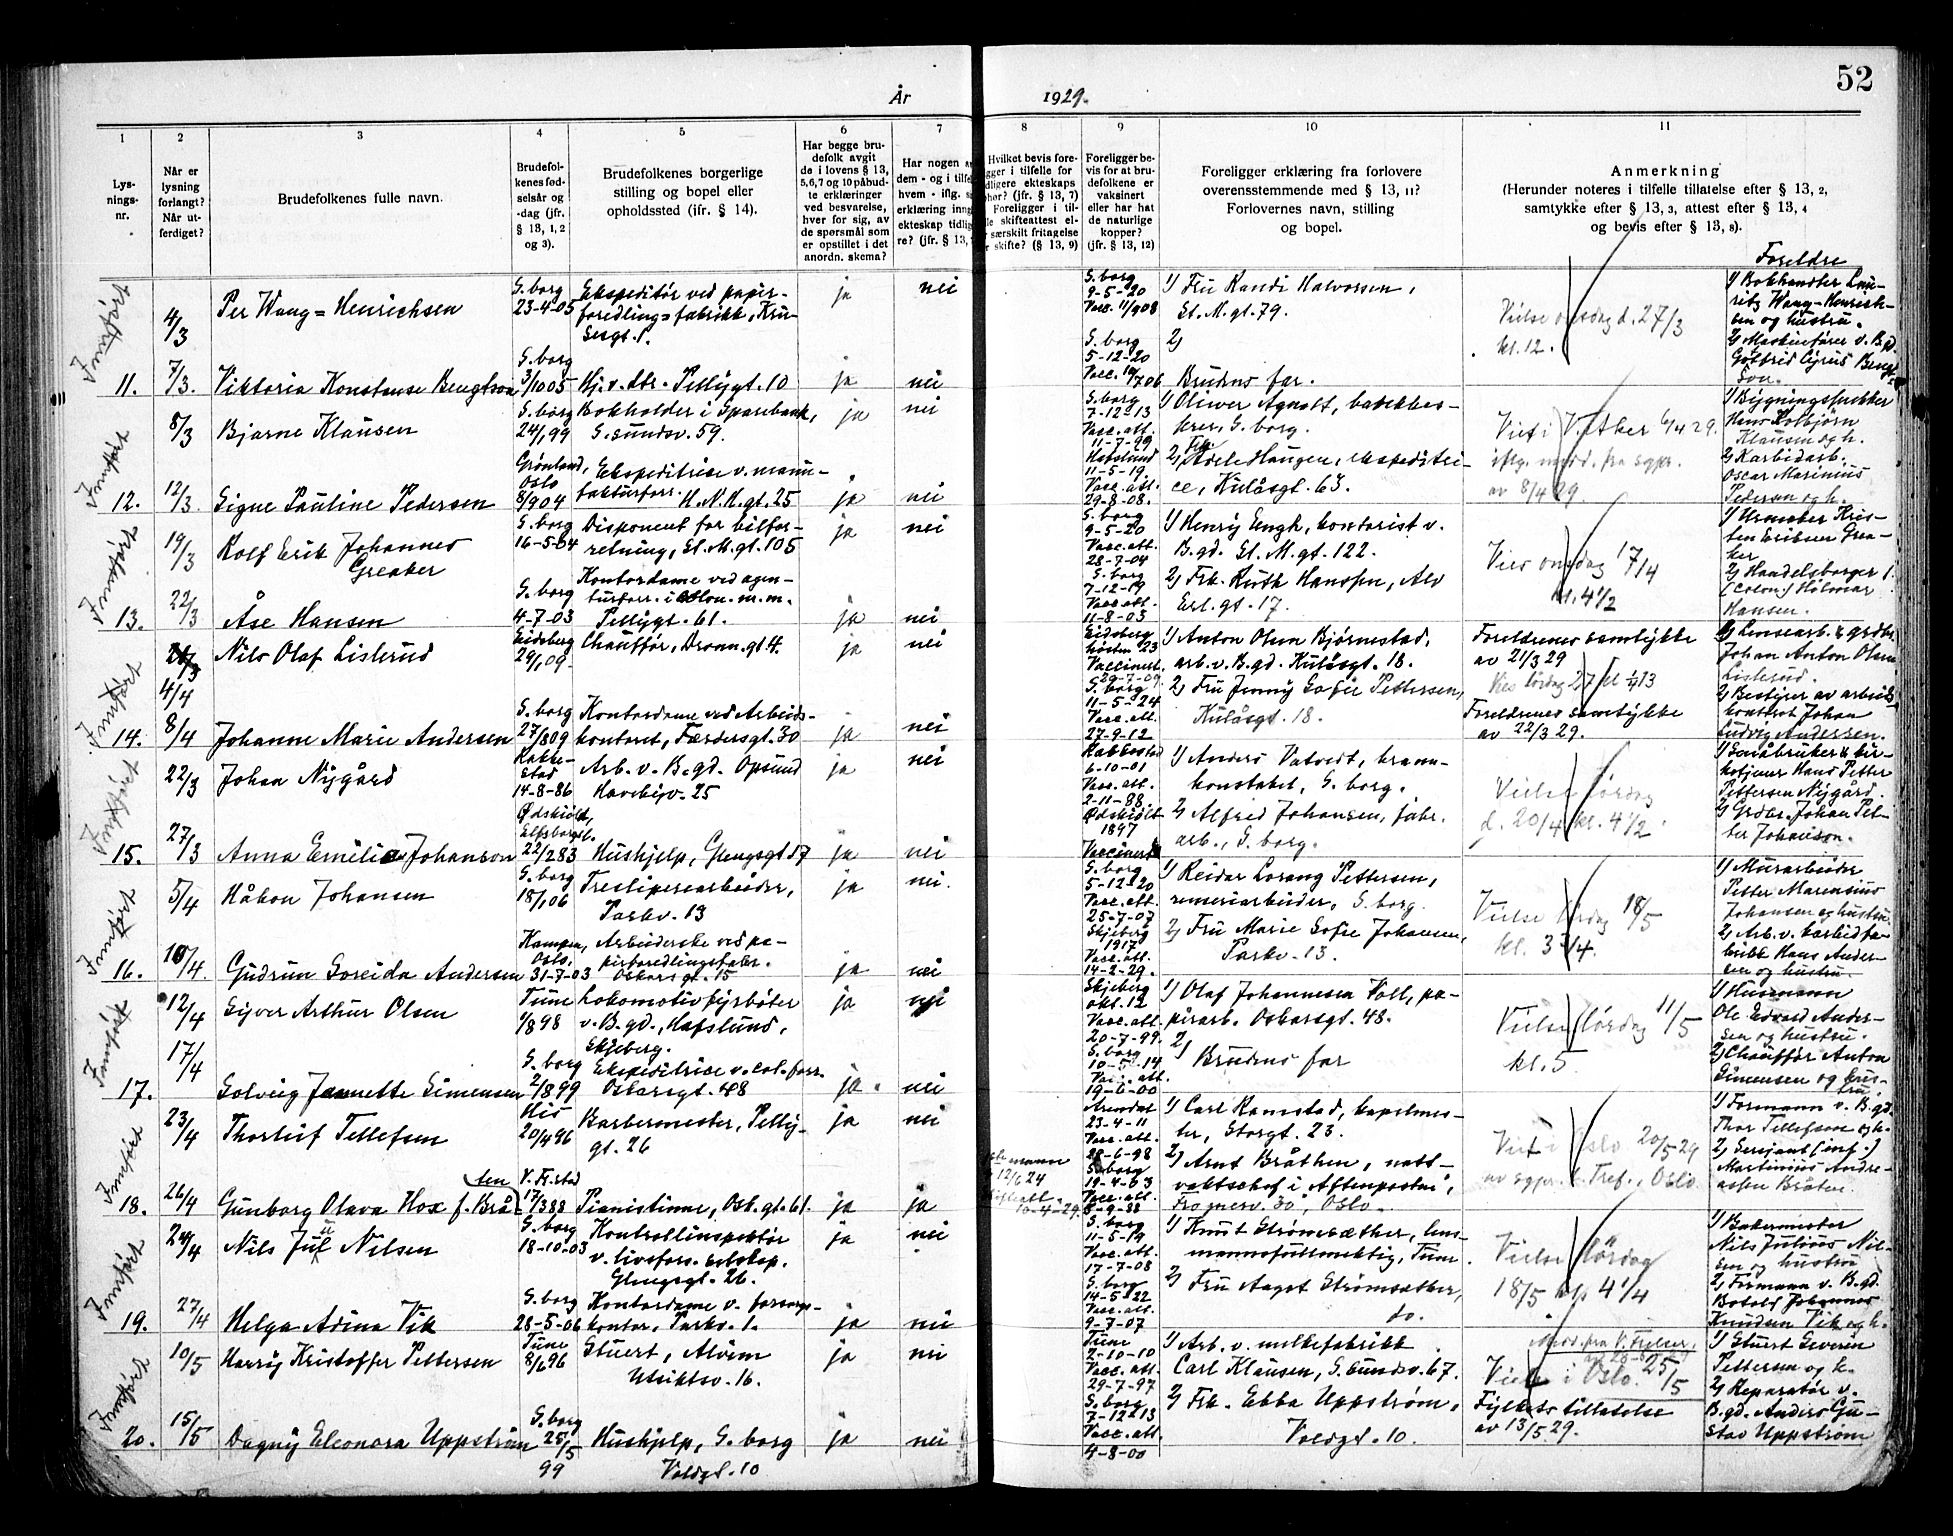 52
År 1929.
1 2 3 4 5 6 7 8 9 10 11
Lys-
nings-
nr.
Når er
lysning
forlangt?
Når ut-
ferdiget?
Brudefolkenes fulle navn.
Brudefol-
kenes fød-
selsår og
-dag (jfr.
§ 13, 1, 2
og 3).
Brudefolkenes borgerlige
stilling og bopel eller
opholdssted (ifr. § 14).
Har begge bru-
defolk avgit
de i lovens § 13,
5,6,7 og 10 påbud-
te erklæringer
ved besvarelse,
hver for sig, av
de spørsmål som
er opstillet i det
anordn. skema?
Har nogen
dem - og i tilfe
hvem - iflg.
erklæring inng
ekteskap tidlig
re? (jfr. § 13,
Hvilket bevis fore-
gger i tilfelle for
dligere ekteskaps
phør? (jfr. § 13, 7)
Foreligger i til-
le skifteattest el-
særskilt fritagelse
skifte? (§ 13, 9)
Foreligger be-
vis for at bru-
defolkene er
vaksinert
eller har hat
de naturlige
kopper?
(jfr. § 13, 12)
Foreligger erklæring fra forlovere
overensstemmende med § 13, 11?
Forlovernes navn, stilling
og bopel.
Anmerkning
(Herunder noteres i tilfelle tillatelse efter § 13, 2,
samtykke efter § 13, 3, attest efter § 13, 4
og bevis efter § 13, 8).
Foreldre
Innført
11.
4/3
7/3.
Per Wang=Henrichsen
S.borg
23-4-05
Ekspeditør ved papir-
foredling=fabrikk, Kru-
sesgt. 1.
ja nei
S. borg
9-5-20
Vacc. 11/9 08
1) Fru Randi Halvorsen,
St. M. gt. 79.
Vielse onsdag d. 27/3
kl. 12.
1) Bokhandler Lau-
ritz Wang=Henrich-
sen og hustru.
Viktoria Konstanse Bengtson
S. borg
3/10 05
Hj. v. dtr. Pellygt. 10
ja nei
S. borg
5-12-20
2)
Brudens far.
2) Maskinfører v. B.gd.
Gottfrid Cyrus Bengt-
son.
Innført
12.
8/3
12/3.
Bjarne Klausen
S. borg
24/1 99
Bokholder i Sparebank,
S. sundsv. 59.
ja nei
S. borg
7-12-13
Vacc. att.
11-7-99
1) Oliver Agnalt, 
S. borg.
Viet i V. Aker 6/4 29.
iflg. medd. fra sgpr.
av 8/4 29.
1) Bygningssnekker
Hans Kolbjørn
Klausen og h.
Signe Pauline Pedersen
Grønland,
Oslo
8/9 04
Ekspeditrise v. manu-
fakturforr. H. N. H. gt. 25
ja nei
Hafslund
11-5-19
Vacc. att.
29-8-08.
2) Frk. Adele Haugen, ekspeditri-
ce, Kulåsgt. 63.
2) Karbidarb.
Oscar Marinius
Pedersen og h.
Innført
13.
19/3
22/3
Rolf Erik Johannes
Greaker
S. borg
16-5-04
Disponent for bilfor-
retning, St. M. gt. 105
ja nei
S. borg
9-5-20
Vacc. att.
28-7-04
1) Henry Engh, kontorist v.
B.gd. St. M. gt. 122.
Vies onsdag 17/4
kl. 4½
1) Urmaker Kris-
ten Eriksen Grea-
ker
Åse Hansen
S. borg
4-7-03
Kontordame ved agen-
turforr.
Pellygt. 61.
ja nei
S. borg
7-12-19
Vacc. att.
11-8-03
2) Frk. Ruth Hanssen, Alv
Erl. gt. 17.
2) Handelsborger
(Colon.) Helmar
Hansen.
Innført
14.
4/4
8/4
Nils Olaf Listerud
Eidsberg
29/1 09.
Chauffør, Dronn. gt. 4.
ja nei
Eidsberg
høsten 23
Vaccinert
29-7-09.
1) Anton Olsen Bjørnestad,
arb. v. B.gd. Kulåsgt. 18.
Foreldrenes samtykke
av 21/3 29
Vies lørdag 27/4 kl 13
1) Lensearb. & grdbr.
Johan Anton Olsen
Listerud.
Johanne Marie Andersen
S. borg
27/8 09
Kontordame ved Arbeids-
kontoret, Færdersgt. 30
ja nei
S. borg
11-5-24
Vacc. att.
27-9-12
2) Fru Jenny Sofie Pettersen,
Kulåsgt. 18.
Foreldrenes samtykke
av 22/3 29.
2) Bestyrer av arbeids-
kontoret Johan
Ludvig Andersen.
Innført
15.
22/3
27/3
Johan Nygård
Rakke-
stad
14-8-86
Arb. v. B.gd. Opsund
Havebyv. 25
ja nei
Rakkestad
6-10-01
Vacc. att.
2-11-88.
1) Anders Vatvedt, brann-
konstabel, S. borg.
Vielse lørdag
d. 20/4 kl. 4½
1) Småbruker & kir-
ketjener Hans Petter
Pettersen Nygård.
Anna Emilie Johanson
Ødskiölt,
Elfsborgsl.
22/2 83
Hushjelp, Glengsgt 17
ja nei
Ødskiölt
1897
Vaccinert
2) Alfred Johansen, fabr.
arb., S. borg.
2) Grdbr. Johan Pet-
ter Johanson.
Innført
16.
5/4
10/4
Håkon Johansen
S. borg
18/1 06
Tresliperiarbeider,
Parkv. 13
ja nei.
S. borg
5-12-20
Vacc. att.
25-7-07
1) Reidar Lorang Pettersen,
renseriarbeider, S. borg.
Vielse lørdag 18/5
kl. 3 3/4.
1) Murarbeider
Petter Marensius
Johansen og hustru.
Gudrun Soreida Andersen
Kampen,
Oslo,
31-7-03
Arbeiderske ved pa-
pirforedlingsfabr.
Oskarsgt. 15
ja nei
Skjeberg
1917
Vacc. att.
14-2-29.
2) Fru Marie Sofie Johansen,
Parkv. 13.
2) Arb. v. karbidfa-
brikk Hans Ander-
sen og hustru.
Innført
17.
12/4
17/4
Syver Arthur Olsen
Tune
1/8 98
Lokomotivfyrbøter
v. B.gd., Hafslund,
Skjeberg.
ja nei
Skjeberg
okt. 12
Vacc. att.
20-7-99.
1) Olaf Johannesen Voll, pa-
pirarb. Oskarsgt. 48.
Vielse lørdag 11/5
kl. 5.
1) Husmann
Ole Edvard Ander-
sen og hustru.
Solveig Jannette Simensen
S. borg
2/8 99
Ekspeditrise v. col. forr.
Oskarsgt. 48
ja. nei
S. borg
10-5-14
Vacc. att.
19-6-00
2)
Brudens far
2) Chauffør Anton
Simensen og hus-
tru.
Innført
18.
23/4
26/4
Thorleif Tellefsen
His
20/4 96
Barbermester, Pelly-
gt. 26
ja nei
Arendal
23-4-11
Vacc. att.
28-6-98
1) Carl Ramstad, kapelmes-
ter, Storgt. 23.
Viet i Oslo 20/5 29
av sgpr. i Tref., Oslo.
1) Formann v. B.gd.
Thor Tellefsen og h.
Gunborg Olava Hox f. Brå-
ten
V. Fr.stad
17/3 88
Pianistinne, Osk. gt. 61.
ja ja
mann
12/6 24
-4-29.
S. borg
19-4-03
Vacc. att.
8-9-88
2) Arnt Bråthen, natt-
vaktschef i Aftenposten,
Frognerv. 30, Oslo.
2) Sersjant (inf.)
Martinius Andre-
assen Bråten.
Innført
19.
24/4
27/4
Nils Juul Nilsen
S. borg
18-10-03
Kontrollinspektør
v. livsfors. selskap.
Glengsgt. 26.
ja nei
S. borg
11-5-19
Vacc. att.
17-7-08
1) Knut Strømsæther, lens-
mannsfullmektig, Tune
Vielse lørdag
18/5 kl. 4 1/4
1) Bakermester
Nils Julius Nil-
sen og hustru
Helga Adina Vik
S. borg
28-5-06
Kontordame v. forsorgs-
kontor, Parkv. 1.
ja nei
S. borg
14-5-22
Vacc. att.
9-7-07
2) Fru Aagot Strømsæther,
do.
2) Formann v. B.gd.
Botolf Johannes
Knudsen Vik og h.
Innført
20.
10/5
15/5
Harry Kristoffer Pettersen
Tune
8/6 96
Stuert, Alvim
Utsiktsv. 16.
ja nei
Tune
2-10-10
Vacc. att.
29-7-97
1) Arb. v. mellefabrikk
Carl Klausen, S. sundsv. 67.
Viet i Oslo. 25/5
1) Stuert Severin
Pettersen og h.
Dagny Eleonora Uppström
S. borg
25/5
99
Hushjelp, S. borg
Voldgt. 10
ja nei
S. borg
7-12-13
Vacc. att.
4-8-00
2) Frk. Ebba Uppstrøm,
Voldgt. 10.
Fylkets tillatelse
av 13/5 29.
2) Reparatør v.
B.gd. Anders Gu-
stav Uppström